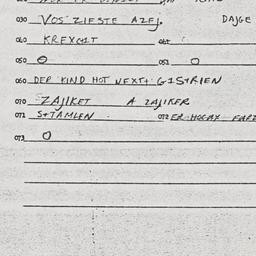 030 VOS ZIESTE AZEJ. DAJGE
040 KREXCIT
050 O 051 O
060 DER KIND HOT NEXT+ GISTRIEN
070 ZAJIKET A ZAJIKER
071 S+TAMLEN 072 ER
073 O